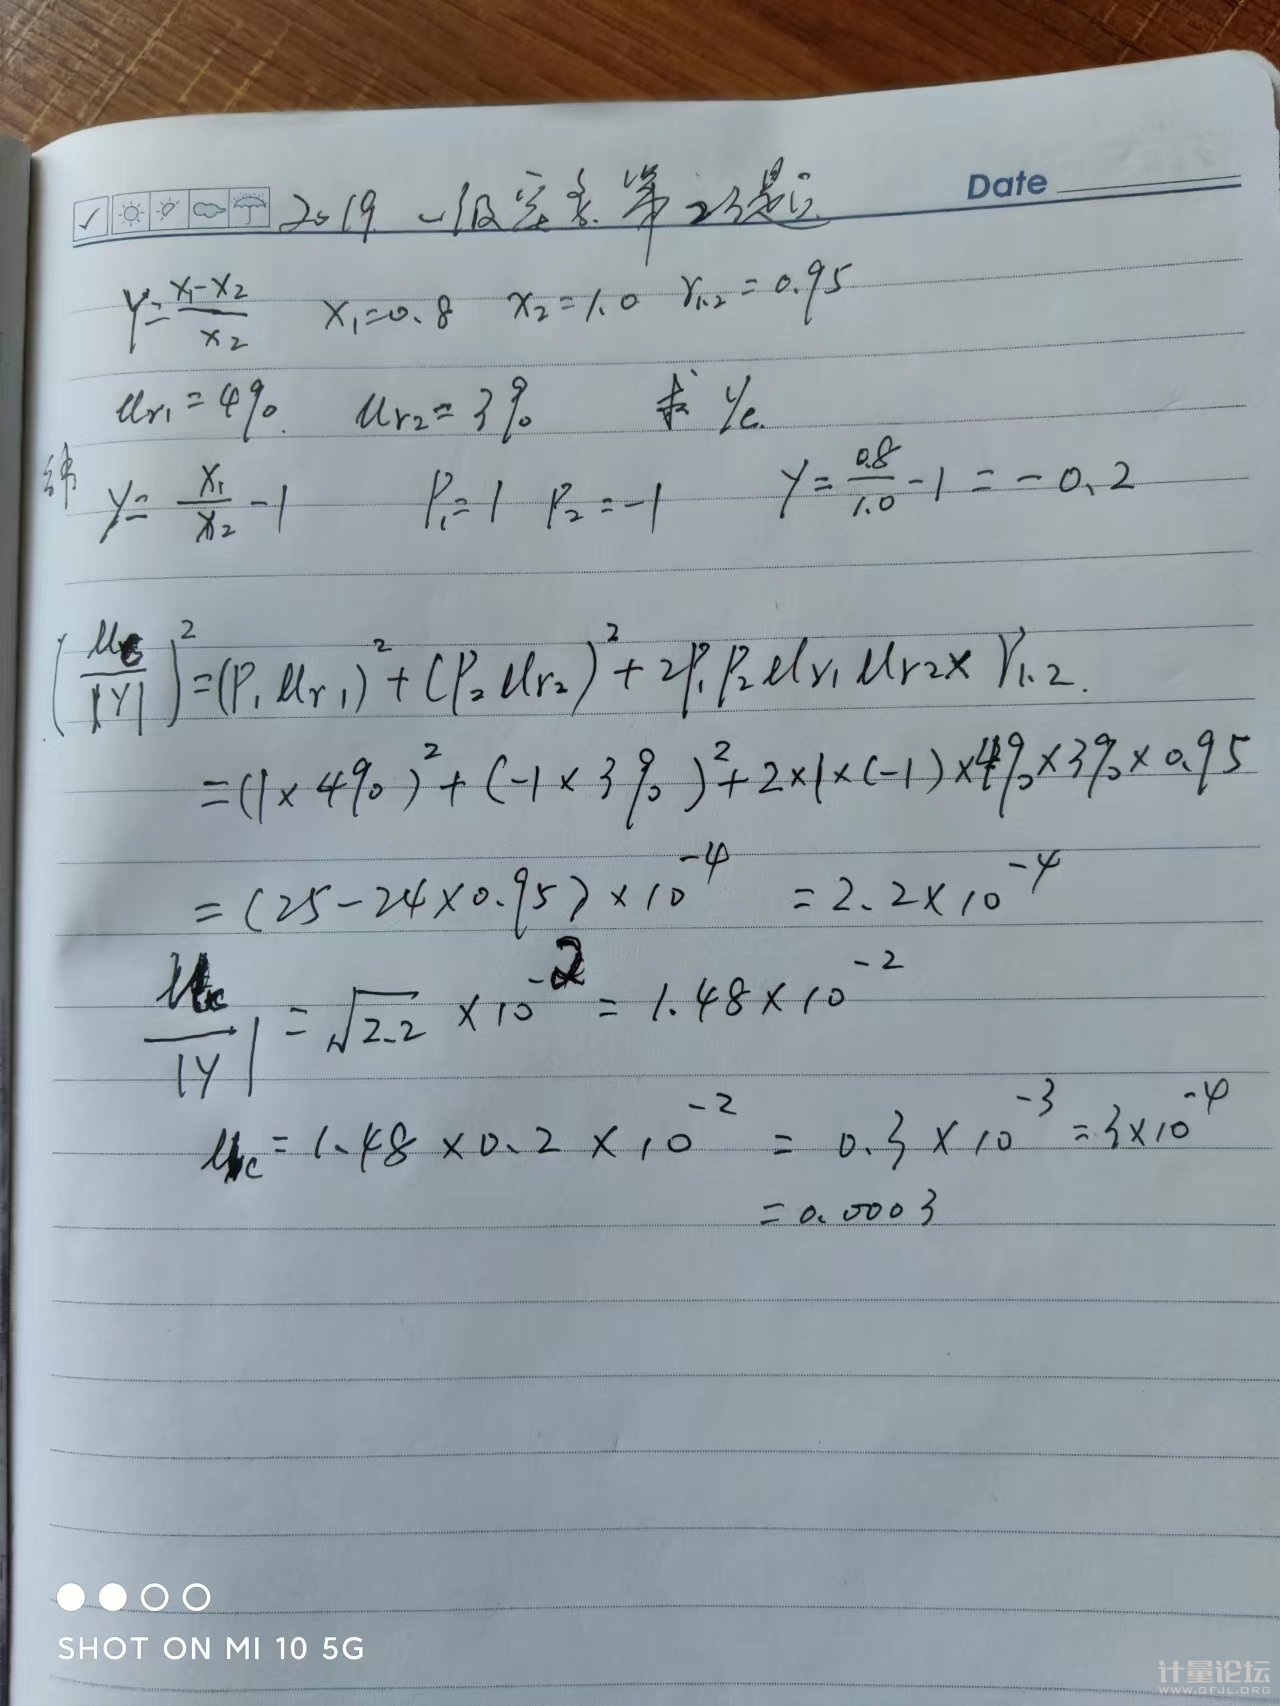 Date
2019 一级实务第23题
Y = (x₁-x₂)/x₂  x₁=0.8  x₂=1.0  r₁.₂=0.95
ur₁=4%.  ur₂=3%  求
Y = x₁/x₂ - 1  P₁=1  P₂=-1  Y = 0.8/1.0 - 1 = -0.2
(uc/|Y|)² = (P₁ur₁)² + (P₂ur₂)² + 2P₁P₂ur₁ur₂ × r₁.₂.
= (1×4%)² + (-1×3%)² + 2×1×(-1)×4%×3%×0.95
= (25-24×0.95)×10⁻⁴ = 2.2×10⁻⁴
uc/|Y| = √2.2 ×10⁻² = 1.48×10⁻²
uc = 1.48×0.2×10⁻² = 0.3×10⁻³ = 3×10⁻⁴
= 0.0003
SHOT ON MI 10 5G
计量论坛
WWW.GFJL.ORG